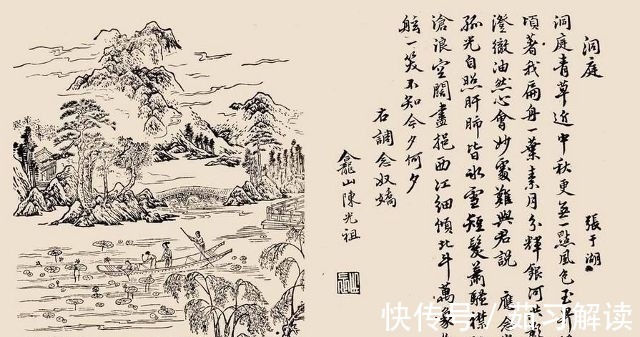 洞庭 張于湖
洞庭青草近中秋更無一點風色玉界
頃著我扁舟一葉素月分輝銀河共影
澄徹油然心會妙處難與君說 應念
孤光自照肝肺皆冰雪短髮蕭騷襟
滄浪空闊盡挹西江細傾北斗萬象
舷一笑不知今夕何夕
右調念奴嬌
龕山陳光祖
快传号/茹习解读